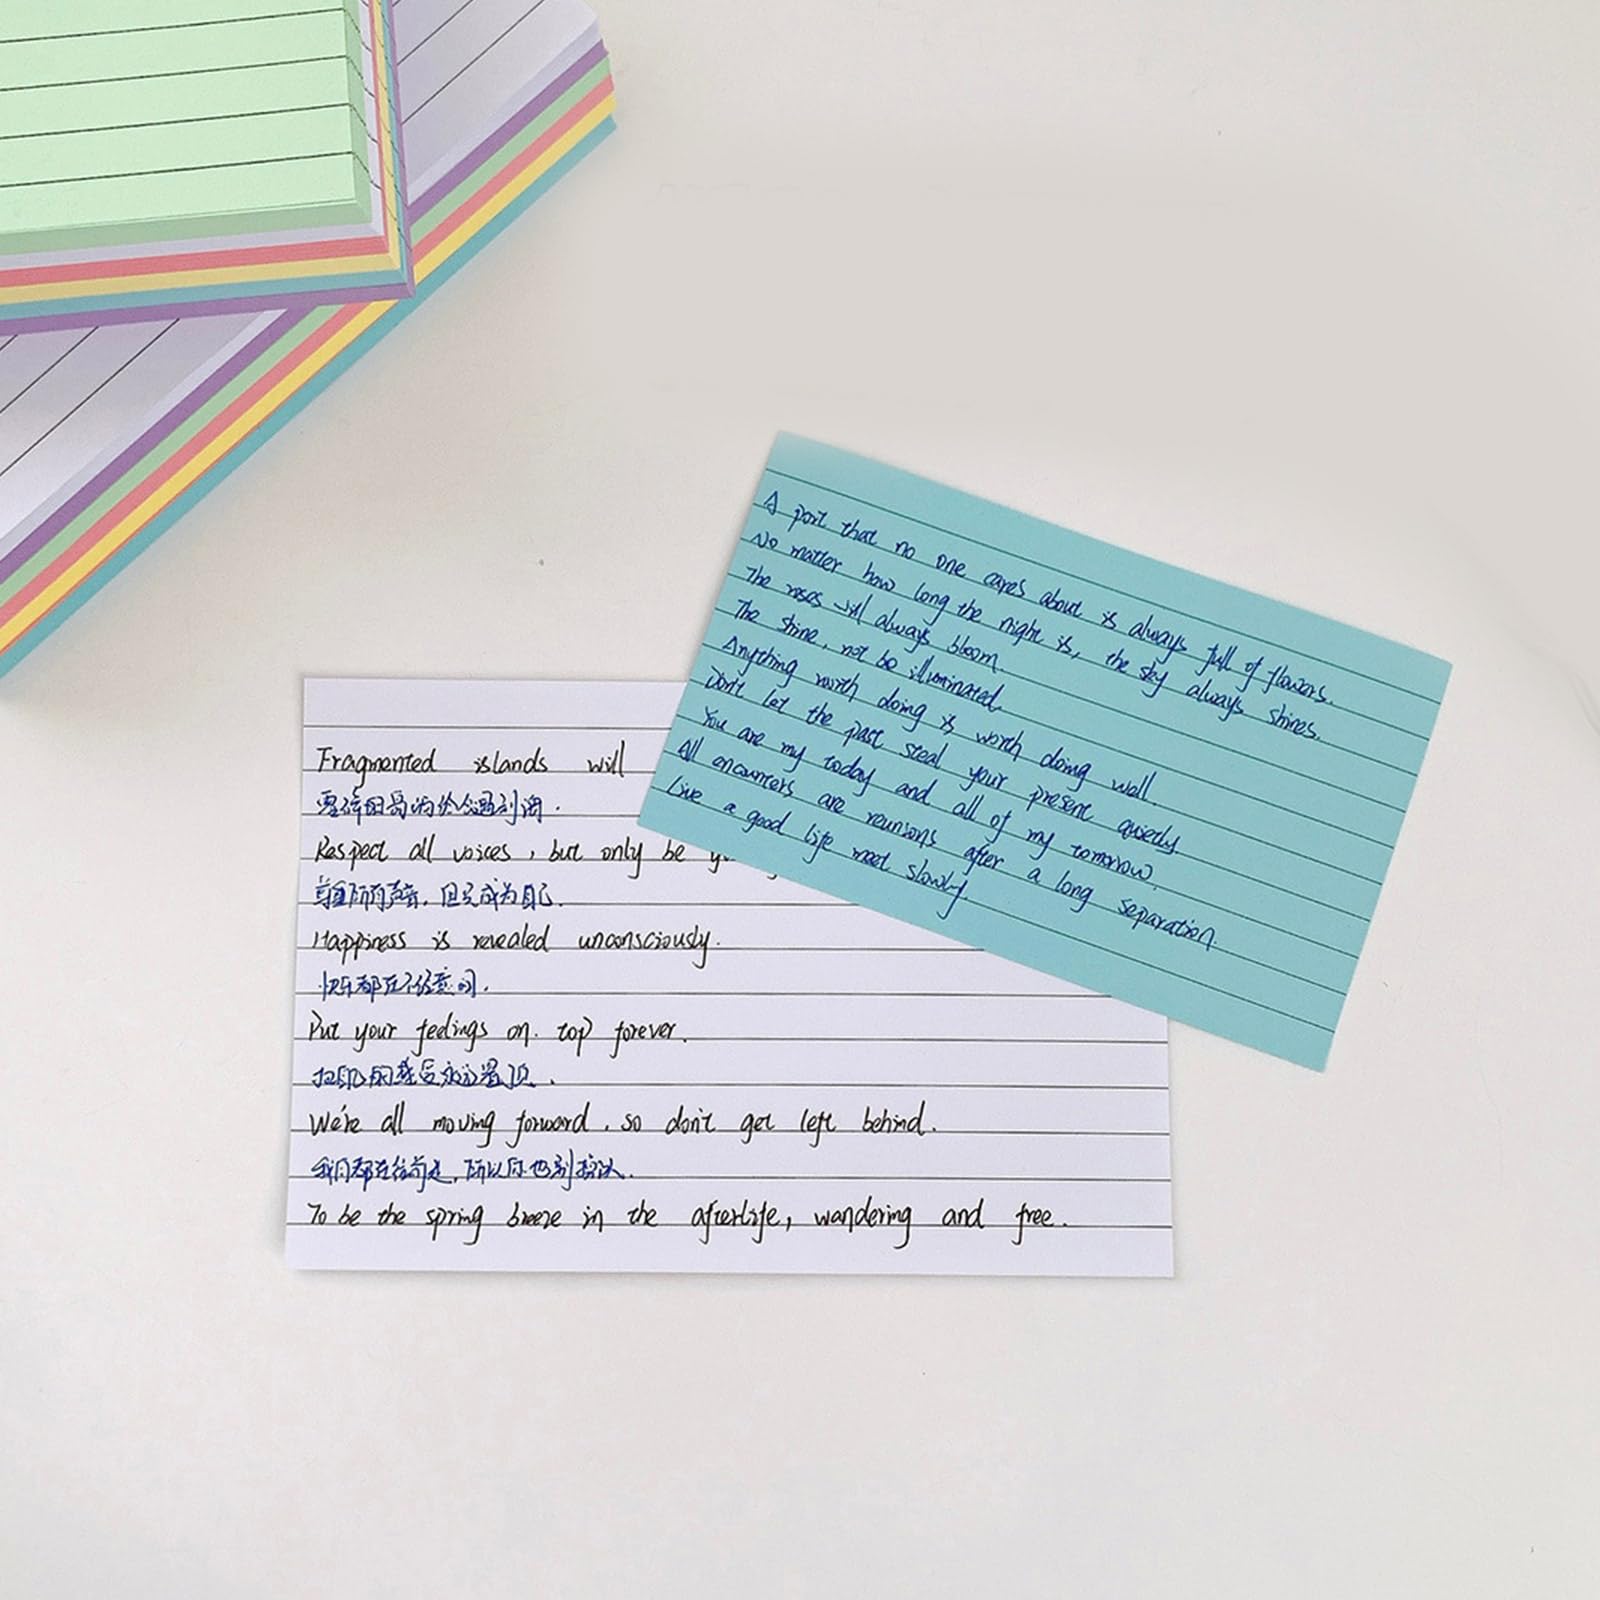 A port that no one cares about is always full of flowers.
No matter how long the night is, the sky always shines.
The roses will always bloom.
The shine, not be illuminated.
Anything worth doing is worth doing well.
Don't let the past steal your present quietly.
You are my today and all of my tomorrow.
All encounters are reunions after a long separation.
Live a good life meet slowly.
Fragmented islands will
零碎的岛屿总会遇到海.
Respect all voices, but only be
尊重所有声音, 但只成为自己.
Happiness is revealed unconsciously.
快乐都在不经意间.
Put your feelings on top forever.
把你的感受永远置顶.
We're all moving forward, so don't get left behind.
我们都在往前走, 所以你也别掉队.
To be the spring breeze in the afterlife, wandering and free.